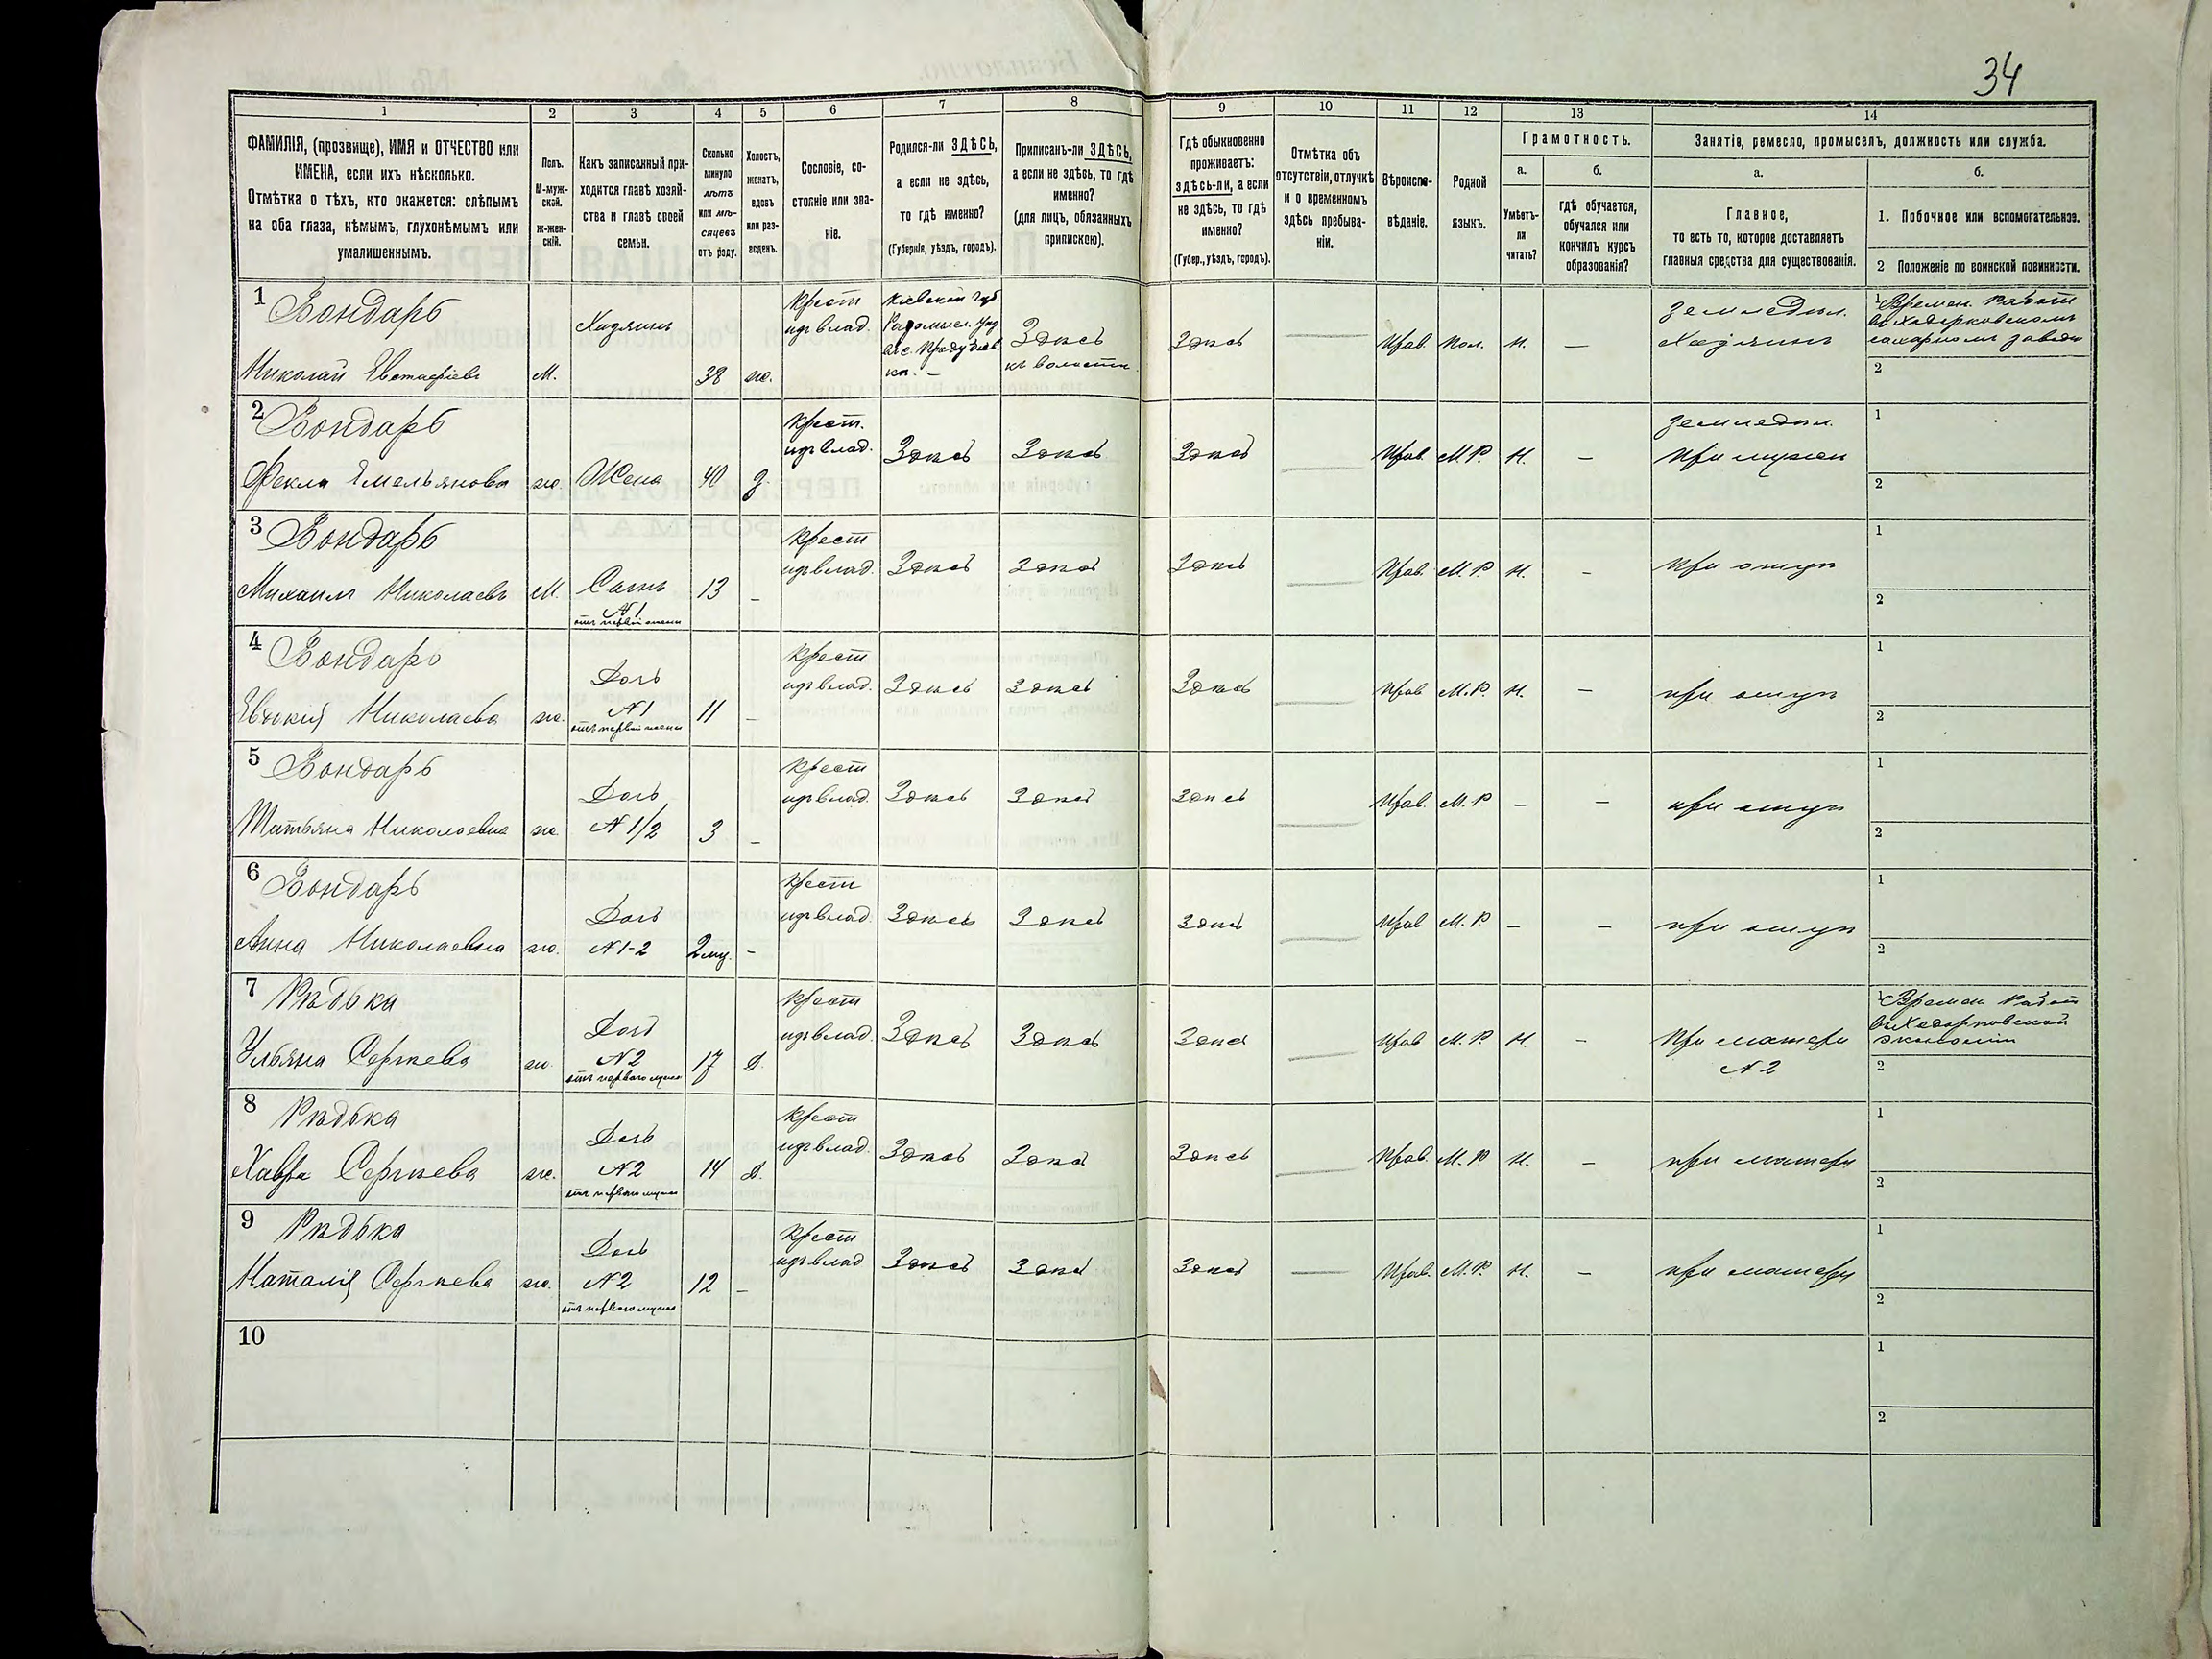 34
1
2
3
4
5
6
7
8
9
10
11
12
13
14
ФАМИЛІЯ, (прозвище), ИМЯ и ОТЧЕСТВО или
ИМЕНА, если ихъ нѣсколько.
Отмѣтка о тѣхъ, кто окажется: слѣпымъ
на оба глаза, нѣмымъ, глухонѣмымъ или
умалишеннымъ.
Полъ.
М-муж-
ской.
Ж-жен-
скій.
Какъ записанный при-
ходится главѣ хозяй-
ства и главѣ своей
семьи.
Сколько
минуло
лѣтъ
или мѣ-
сяцевъ
отъ роду.
Холостъ,
женатъ,
вдовъ
или раз-
веденъ.
Сословіе, со-
стояніе или зва-
ніе.
Родился-ли ЗДѢСЬ,
а если не здѣсь,
то гдѣ именно?
(Губернія, уѣздъ, городъ).
Приписанъ-ли ЗДѢСЬ,
а если не здѣсь, то гдѣ
именно?
(для лицъ, обязанныхъ
припискою).
Гдѣ обыкновенно
проживаетъ:
здѣсь-ли, а если
не здѣсь, то гдѣ
именно?
(Губер., уѣздъ, городъ).
Отмѣтка объ
отсутствіи, отлучкѣ
и о временномъ
здѣсь пребыва-
ніи.
Вѣроиспо-
вѣданіе.
Родной
языкъ.
Грамотность.
а.
Умѣетъ-
ли
читать?
б.
гдѣ обучается,
обучался или
кончилъ курсъ
образованія?
Занятіе, ремесло, промыселъ, должность или служба.
а.
Главное,
то есть то, которое доставляетъ
главныя средства для существованія.
б.
1. Побочное или вспомогательное.
2 Положеніе по воинской повинности.
1 Бондарь
Николай Евстафіевъ
М.
Хозяинъ
38
ж.
Крест
изъ влад.
Кіевской губ.
Радомысл. уѣз
Здѣсь
къ волости
Здѣсь
Прав.
Пол.
Н.
—
Земледѣл.
Хозяинъ
1 Времен. Работ
въ Ходорковскомъ
сахарномъ завод
2
2 Бондарь
Фекла Емельянова
ж.
Жена
40
З.
Крест.
изъ влад.
Здѣсь
Здѣсь
Здѣсь
Прав.
М. Р.
Н.
—
Земледѣл.
При мужѣ
1
2
3 Бондарь
Михаилъ Николаевъ
М.
Сынъ
N 1
отъ первой жены
13
—
Крест
изъ влад.
Здѣсь
Здѣсь
Здѣсь
Прав.
М. Р.
Н.
—
При отцѣ
1
2
4 Бондарь
Евдокія Николаева
ж.
Дочь
N 1
отъ первой жены
11
—
Крест
изъ влад.
Здѣсь
Здѣсь
Здѣсь
Прав
М. Р.
Н.
—
при отцѣ
1
2
5 Бондарь
Татьяна Николаевна
ж.
Дочь
N 1/2
3
—
Крест
изъ влад.
Здѣсь
Здѣсь
Здѣсь
Прав.
М. Р
—
—
при отцѣ
1
2
6 Бондарь
Анна Николаевна
ж.
Дочь
N 1-2
2 мц.
—
Крест
изъ влад.
Здѣсь
Здѣсь
Здѣсь
Прав
М. Р.
—
—
при отцѣ
1
2
7 Рѣдька
Ульяна Сергѣева
ж.
Дочь
N 2
отъ перваго мужа
17
Д.
Крест
изъ влад.
Здѣсь
Здѣсь
Здѣсь
Прав
М. Р.
Н.
—
При матери
N 2
1 Времен Работ
въ Ходорковской
экономіи
2
8 Рѣдька
Хавра Сергѣева
ж.
Дочь
N 2
отъ перваго мужа
14
Д.
Крест
изъ влад.
Здѣсь
Здѣсь
Здѣсь
Прав.
М. Р
Н.
—
при матери
1
2
9 Рѣдька
Наталія Сергѣева
ж.
Дочь
N 2
отъ перваго мужа
12
—
Крест
изъ влад
Здѣсь
Здѣсь
Здѣсь
Прав.
М. Р.
Н.
—
при матери
1
2
10
1
2